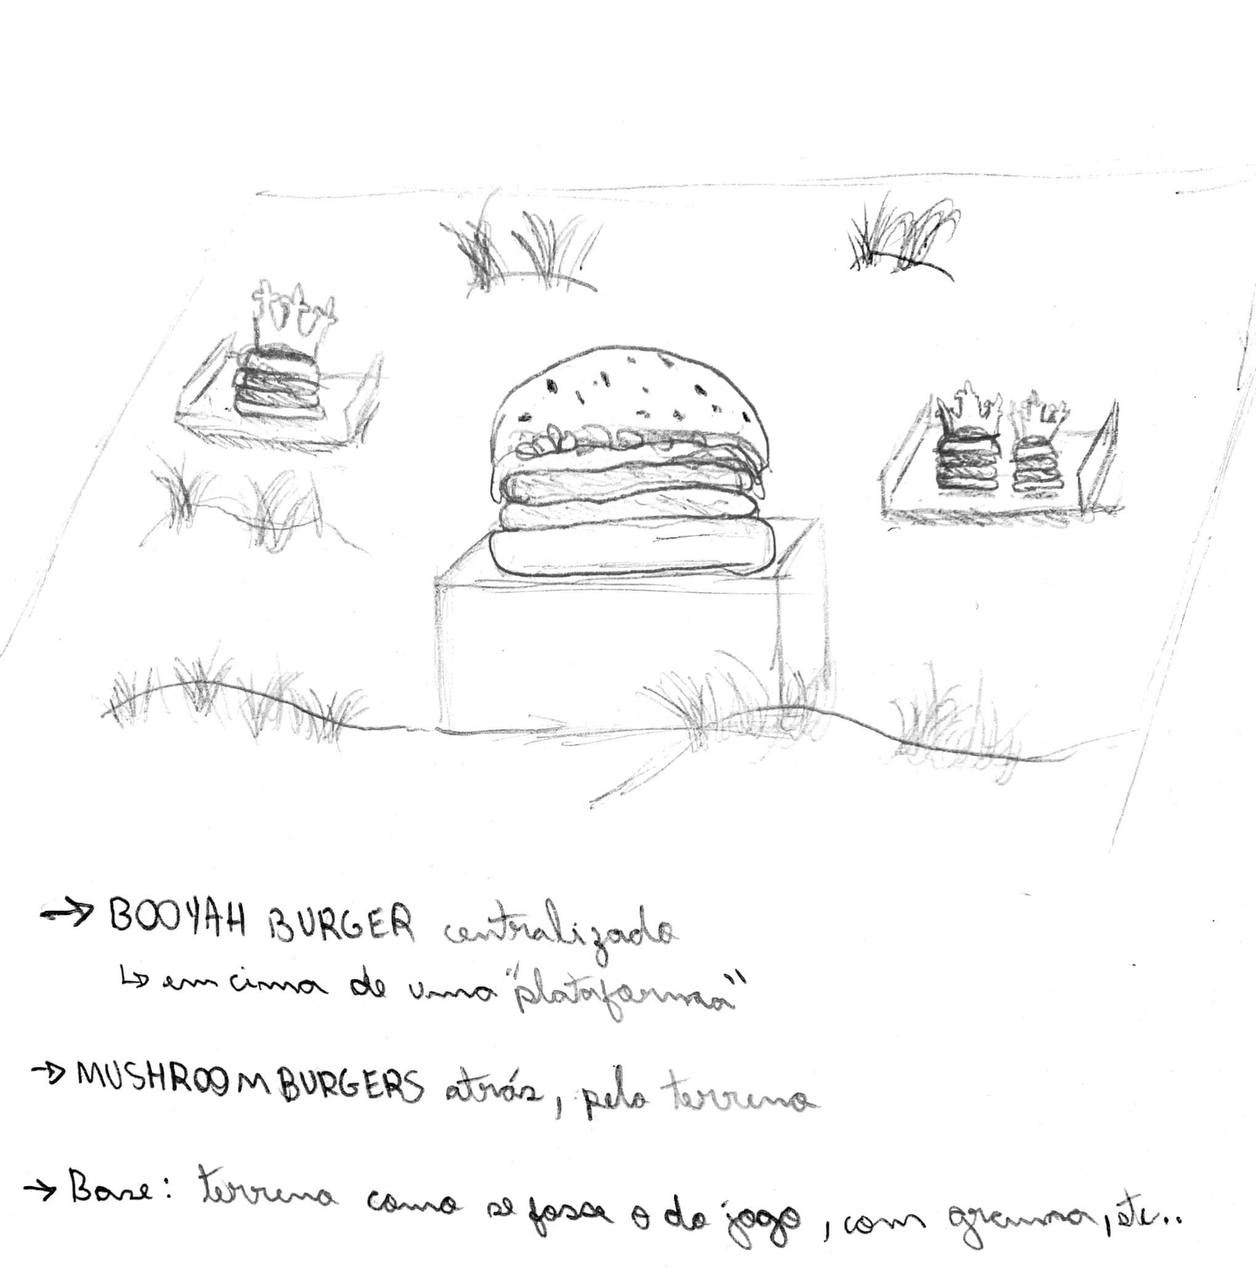 → BOOYAH BURGER centralizado
↳ em cima de uma "plataforma"
→ MUSHROOM BURGERS atrás, pelo terreno
→ Base: terreno como se fosse o do jogo, com grama, etc..